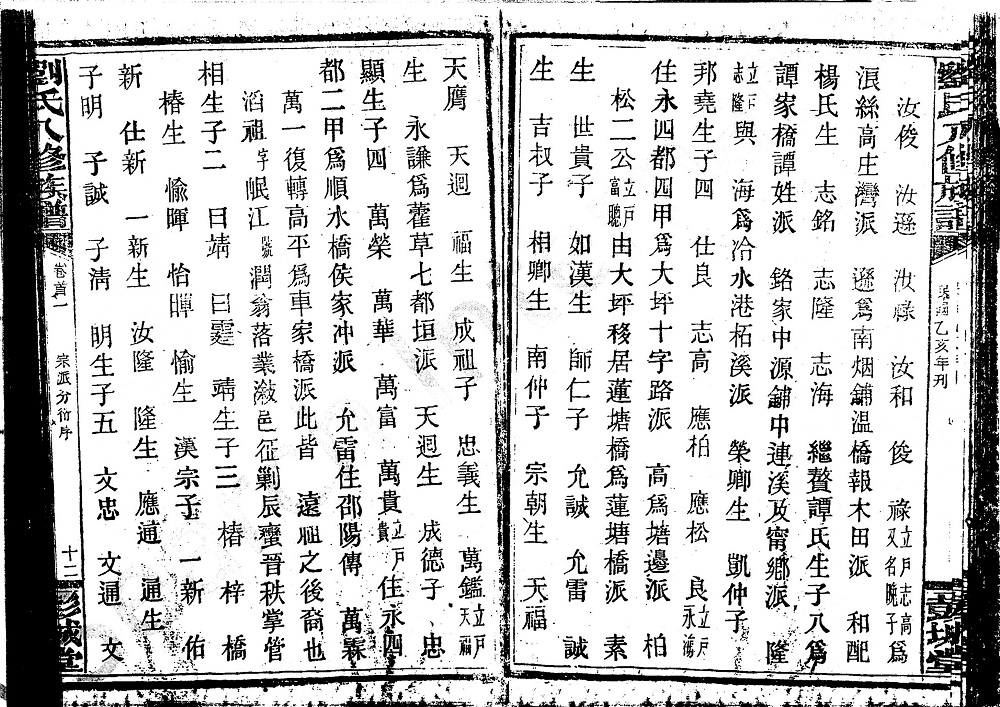 劉氏八修族譜
民國乙亥年刊
彭城堂
汝俊 汝遜 汝祿 汝和 俊 祿又名騰子爲立戶志高
浪絲高庄灣派 遜爲南烟舖溫橋報木田派 和配
楊氏生 志銘 志隆 志海 繼聱譚氏生子八爲
譚家橋譚姓派 銘家中源舖中連溪及甯鄉派 隆
立戶志隆與 海爲冷水港柘溪派 榮卿生 凱仲子
邦堯生子四 仕良 志高 應柏 應松 良立戶永鴻
住永四都四甲爲大坪十字路派 高爲塘邊派 柏
松二公立戶富聽由大坪移居蓮塘橋爲蓮塘橋派 素
生 世貴子 如漢生 師仁子 允誠 允雷 誠
生 吉叔子 相卿生 南仲子 宗朝生 天福
天鷹 天週 福生 成祖子 忠義生 萬鑑立戶天福
生 永謙爲藿草七都垣派 天週生 成德子 忠
顯生子四 萬榮 萬華 萬富 萬貴立戶貴住永四
都二甲爲順水橋侯家冲派 允雷住邵陽傳 萬霖
萬一復轉高平爲車家橋派此皆 遠祖之後裔也
滔祖字岷江號潤翁落業漵邑征剿辰蠻晉秩掌管
相生子二 曰靖 曰霆 靖生子三 椿 梓 橋
椿生 愉暉 怡暉 愉生 漢宗子 一新 佑
新 仕新 一新生 汝隆 隆生 應通 通生
子明 子誠 子清 明生子五 文忠 文通 文
劉氏八修族譜
卷首一
宗派分衍序
十二
彭城堂